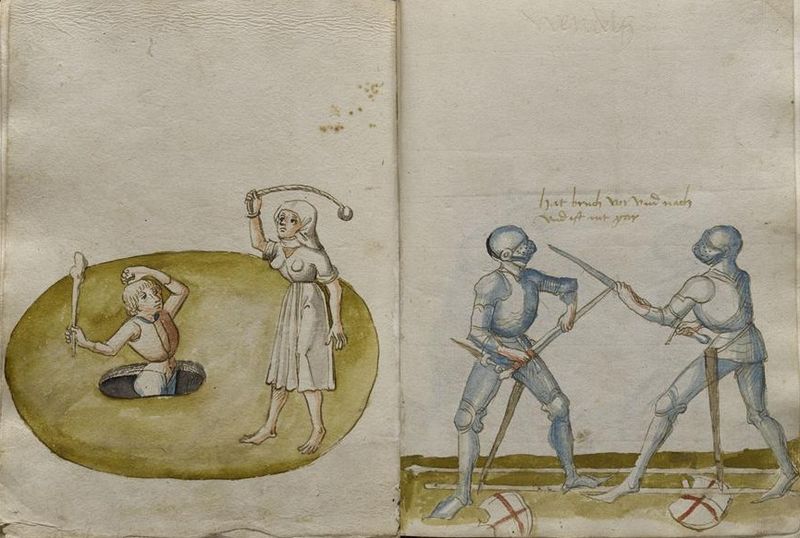 hat bruch vor vnd nach
vnd ist mt gar